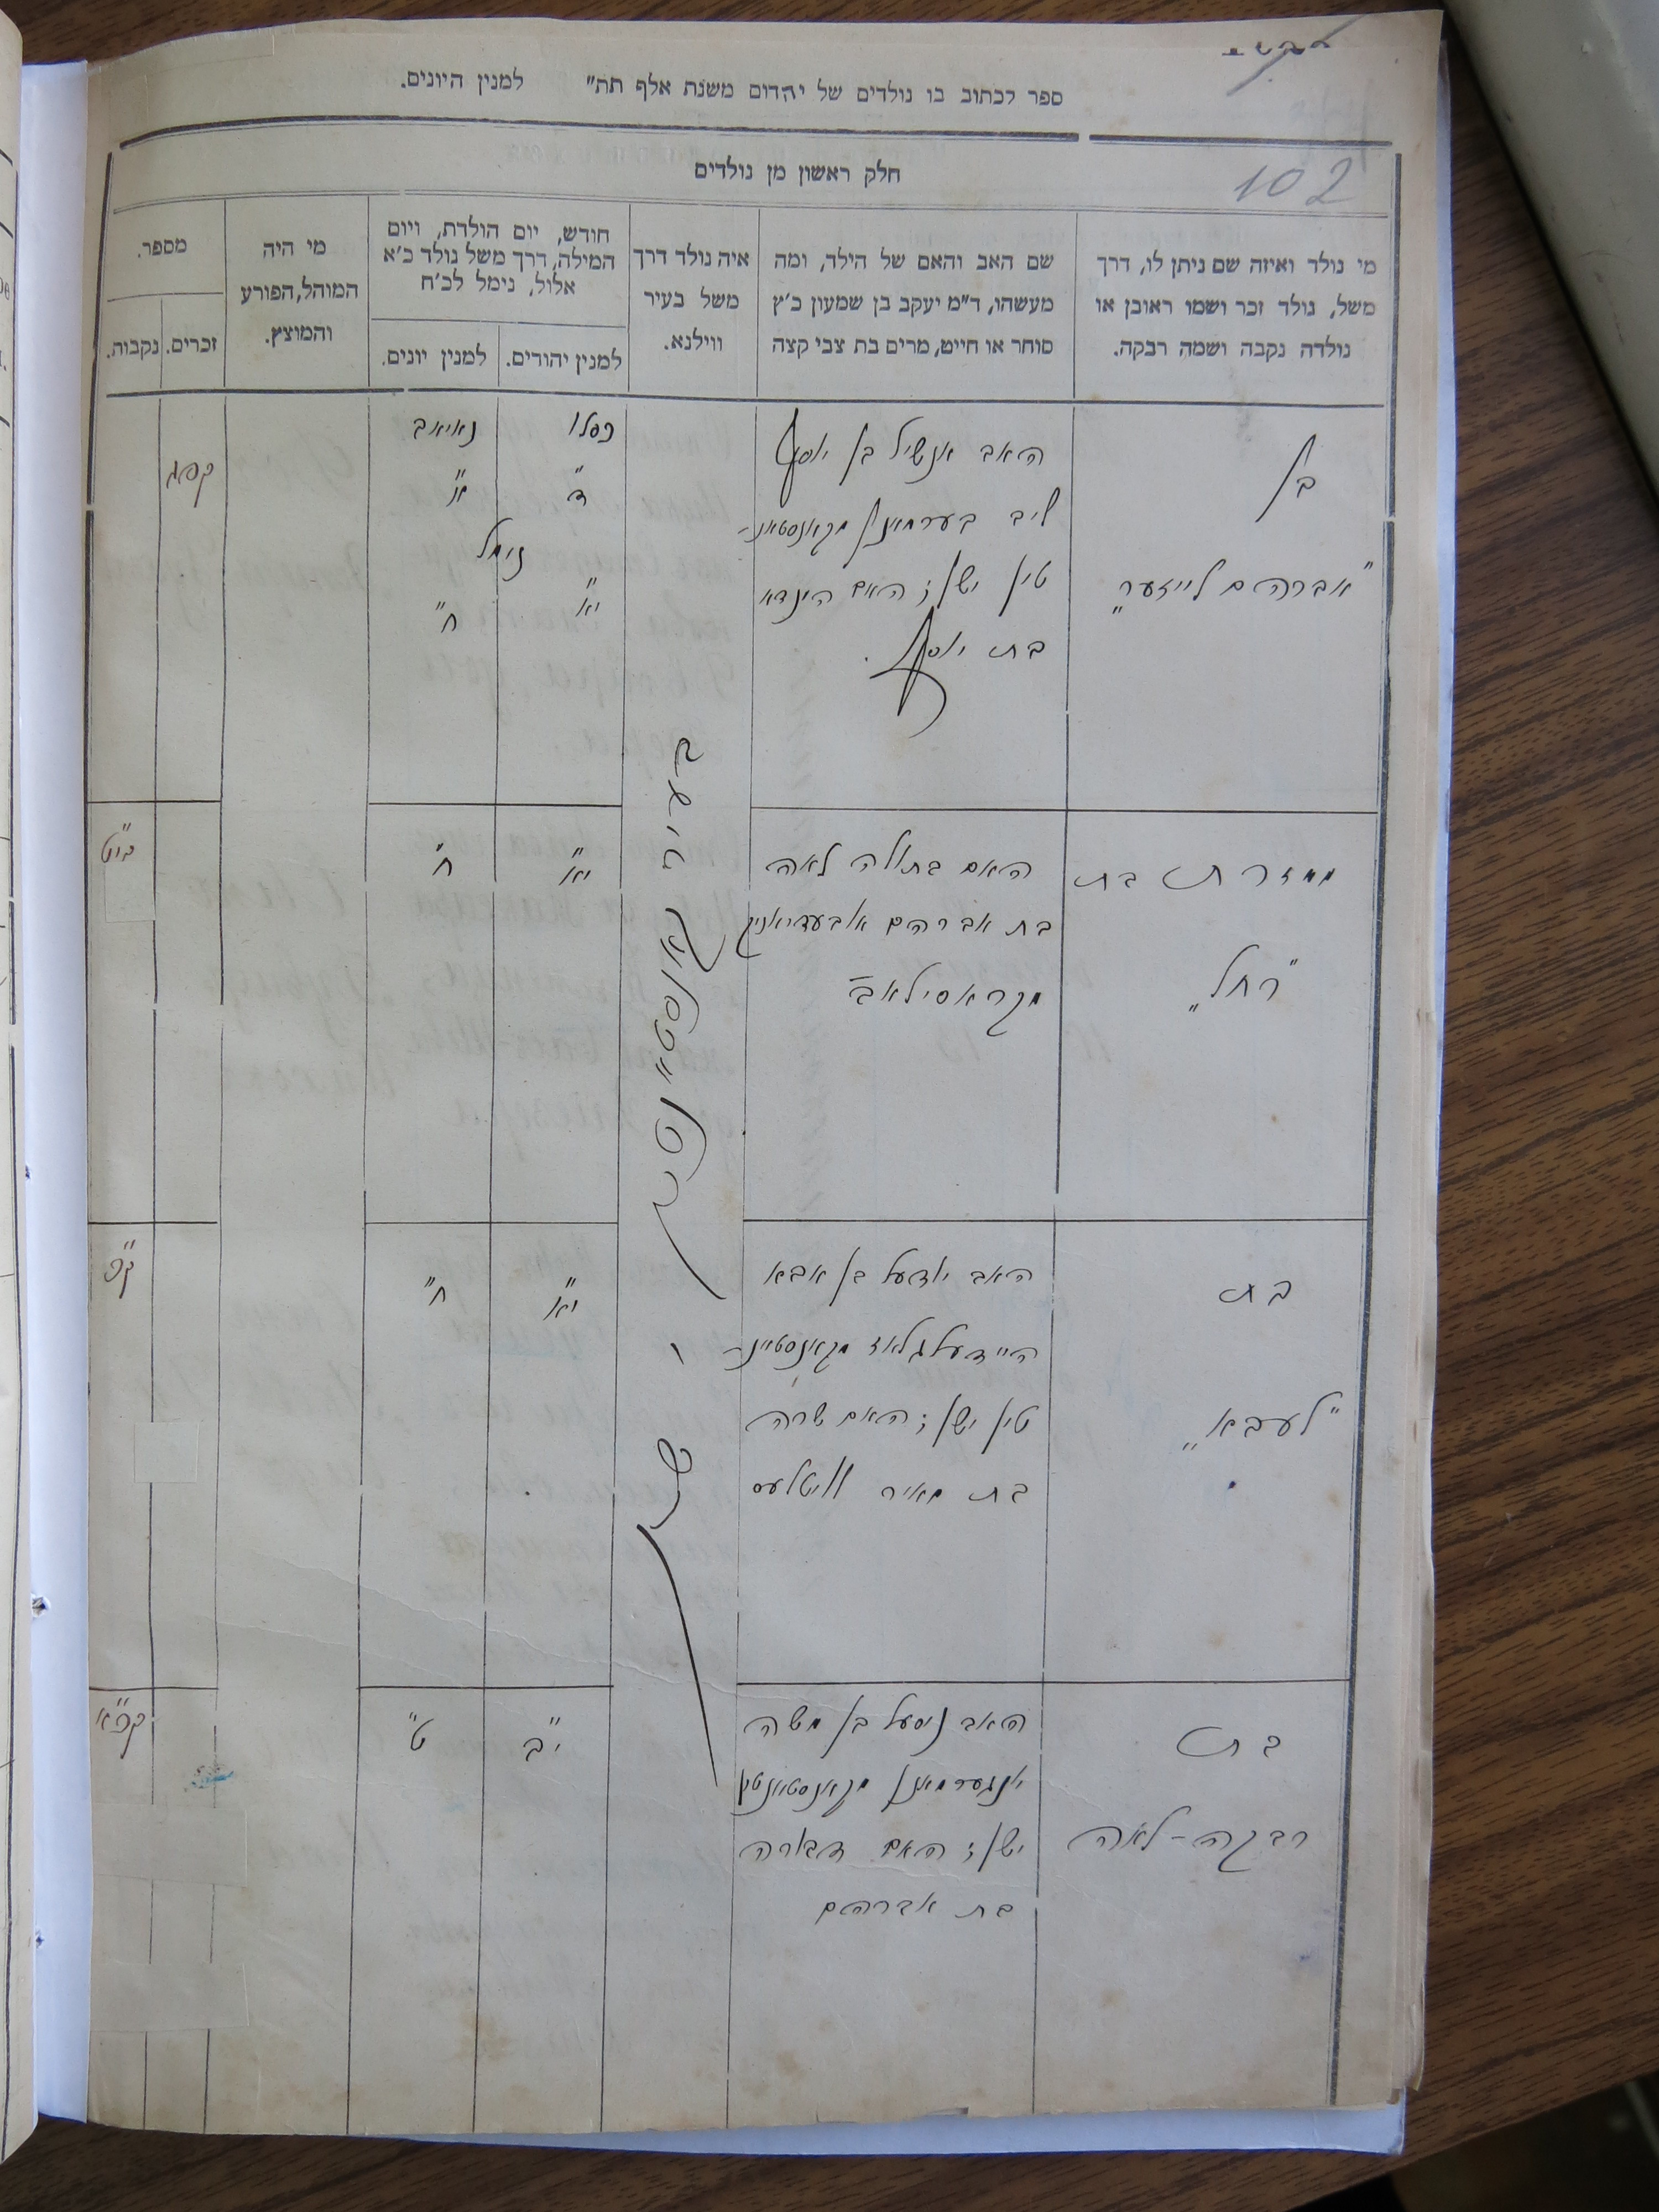 ספר לכתוב בו נולדים של יהדום משנת אלף תת״ למנין היונים.
102
חלק ראשון מן נולדים
מי נולד ואיזה שם ניתן לו, דרך
משל, נולד זכר ושמו ראובן או
נולדה נקבה ושמה רבקה.
שם האב והאם של הילד, ומה
מעשהו, ד״מ יעקב בן שמעון כ׳ץ
סוחר או חייט, מרים בת צבי קצה
איה נולד דרך
משל בעיר
ווילנא.
חודש, יום הולדת, ויום
המילה, דרך משל נולד כ׳א
אלול, נימל לכ׳ח
למנין יהורים.
למנין יונים.
מי היה
המוהל, הפורע
והמוצץ.
מספר.
זכרים.
נקבות.
בן
"אברהם לייזער"
האב אנשיל בן יוסף
ליב בערמאן מקאנסטאנ-
טין ישן; האם הינדא
בת יוסף.
בעיר קאנסטאנטין ישן
כסלו
ד״
נאיאב
א״
נימל
יא״
ח״
ממזרת בת
"רחל"
האם בתולה לאה
בת אברהם
מקראסילאב
יא״
ח״
בת
"לעבא"
האב יודעל בן אבא
היידעלגלאז מקאנסטאנ-
טין ישן; האם שרה
בת מאיר
יא״
ח״
ק״פ
בת
רבקה-לאה
האב נוסעל בן משה
יונגערמאן מקאנסטאנטין
ישן; האם דבורה
בת אברהם
י״ב
ט״
קפ״א